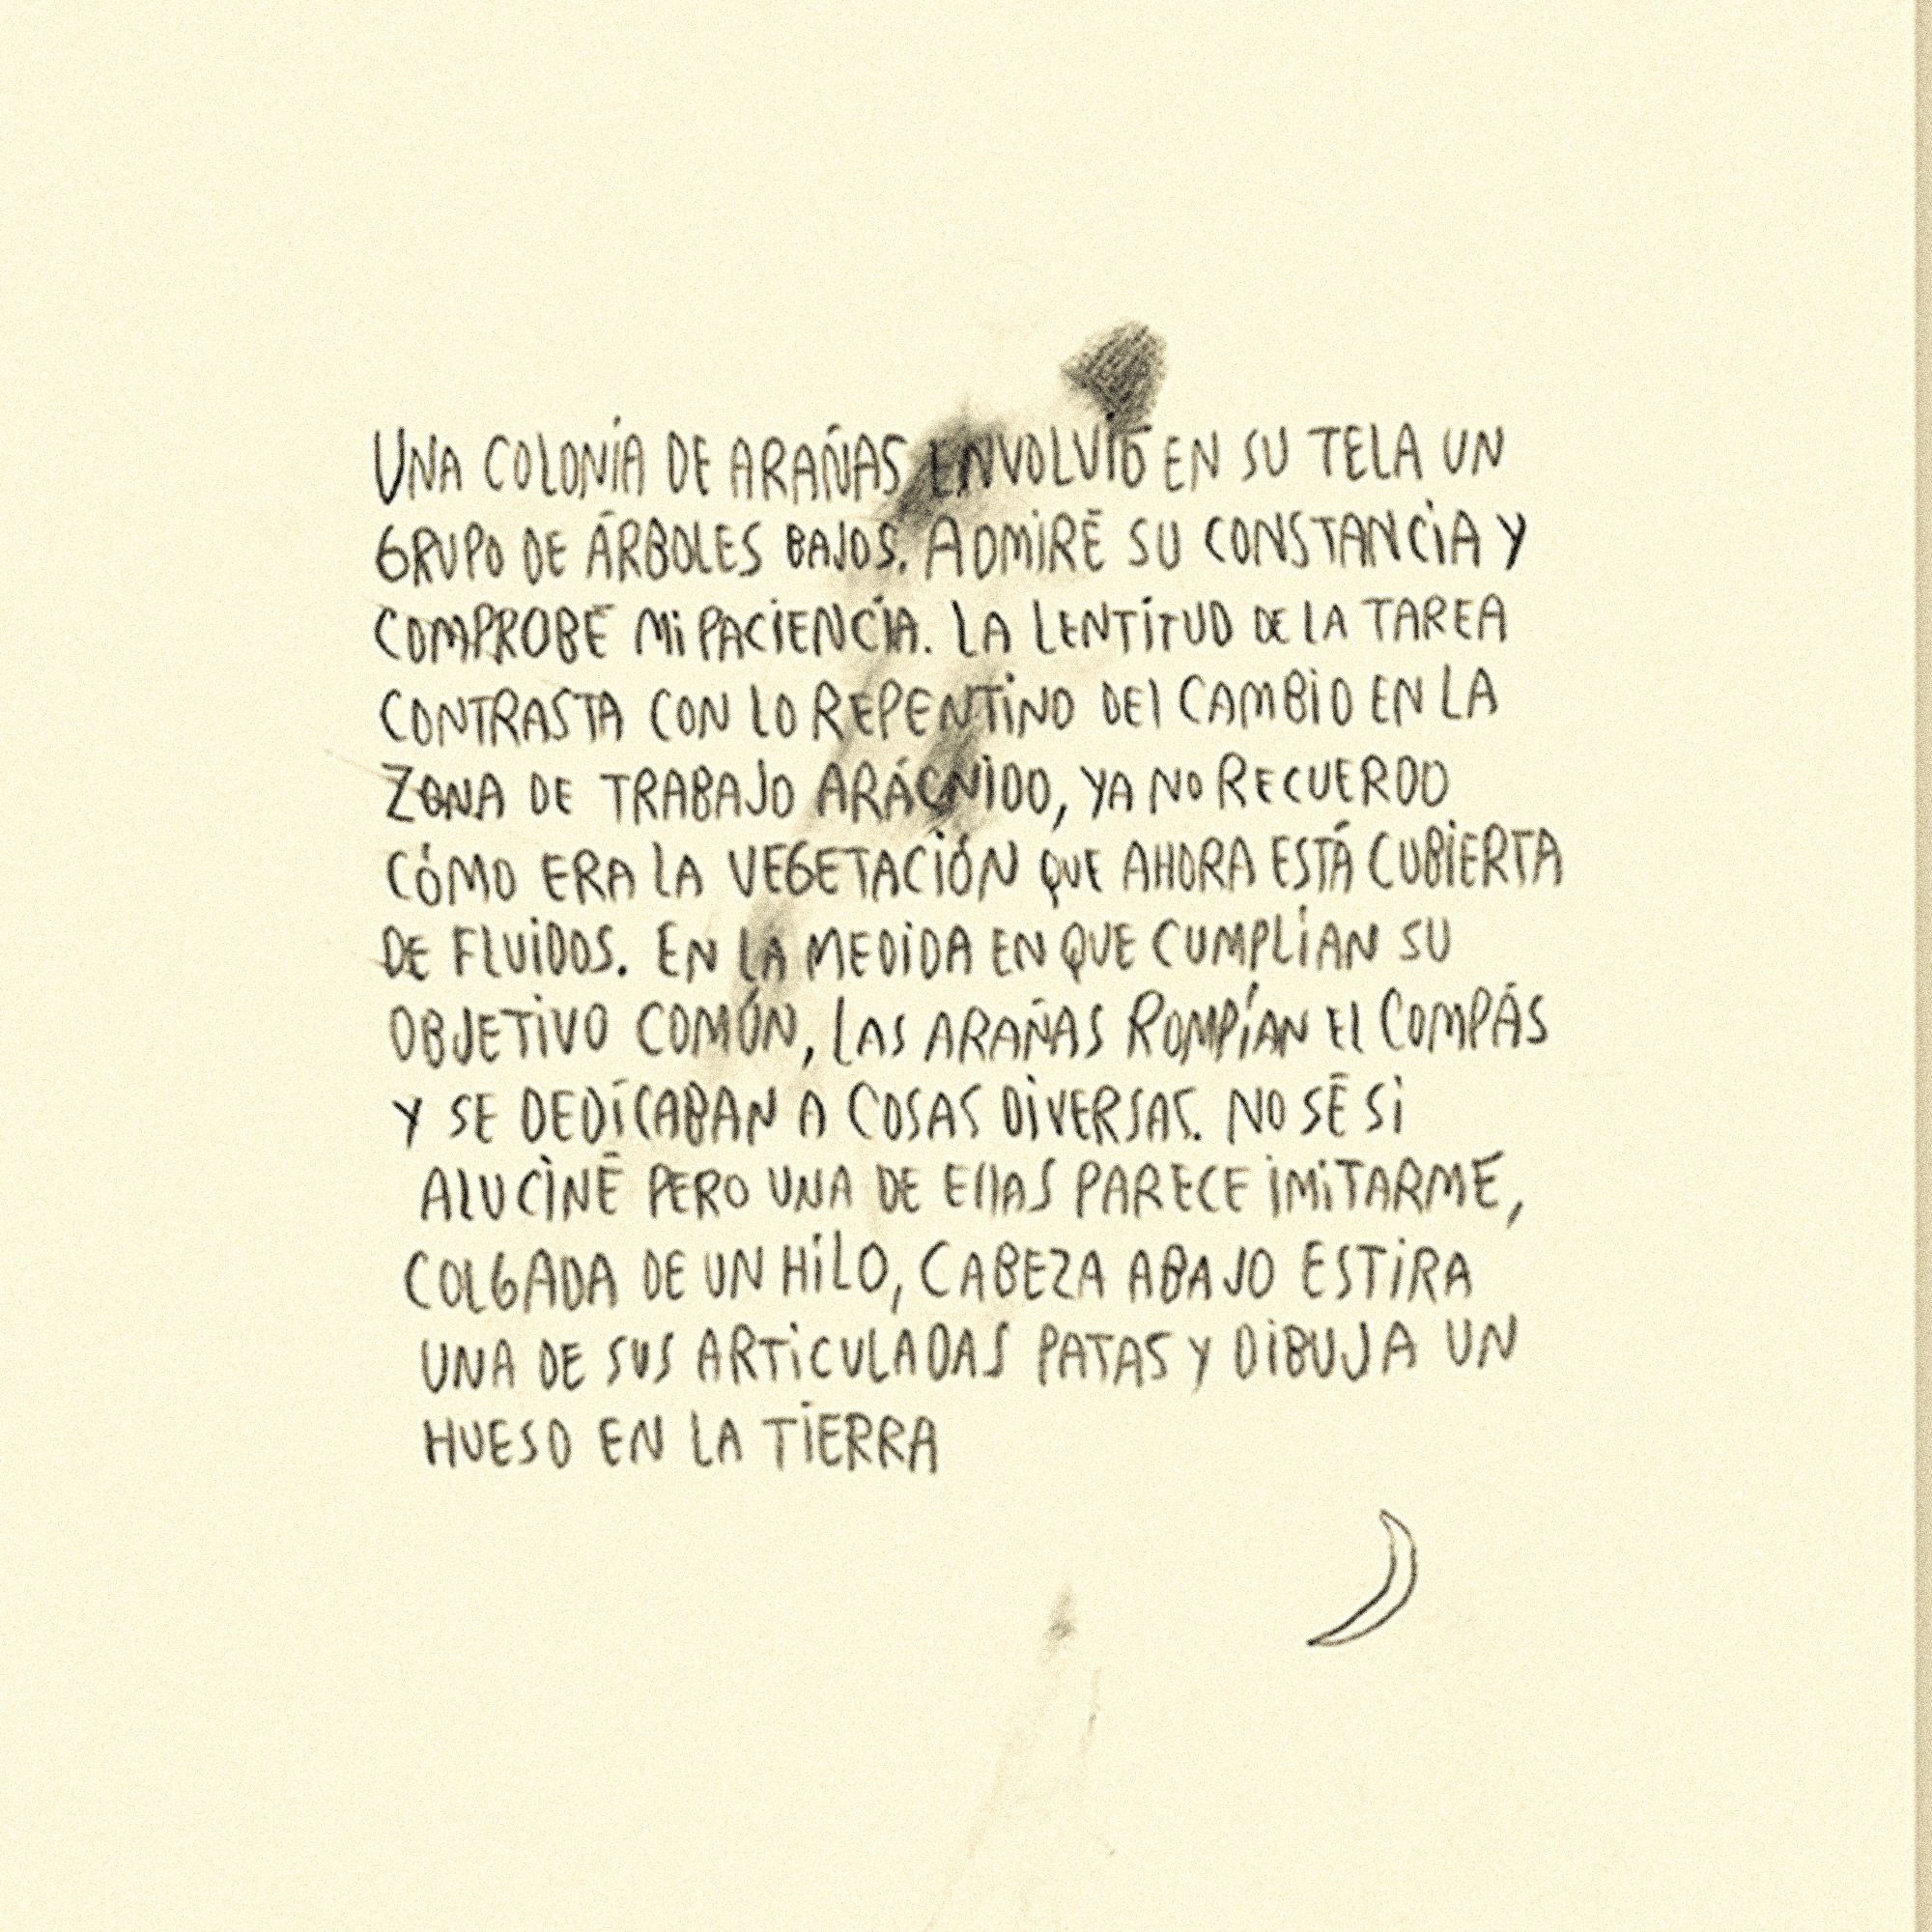 UNA COLONIA DE ARAÑAS ENVOLVIÓ EN SU TELA UN
GRUPO DE ÁRBOLES BAJOS. ADMIRÉ SU CONSTANCIA Y
COMPROBÉ MI PACIENCIA. LA LENTITUD DE LA TAREA
CONTRASTA CON LO REPENTINO DEL CAMBIO EN LA
ZONA DE TRABAJO ARÁCNIDO, YA NO RECUERDO
CÓMO ERA LA VEGETACIÓN QUE AHORA ESTÁ CUBIERTA
DE FLUIDOS. EN LA MEDIDA EN QUE CUMPLÍAN SU
OBJETIVO COMÚN, LAS ARAÑAS ROMPÍAN EL COMPÁS
Y SE DEDICABAN A COSAS DIVERSAS. NO SÉ SI
ALUCINÉ PERO UNA DE ELLAS PARECE IMITARME,
COLGADA DE UN HILO, CABEZA ABAJO ESTIRA
UNA DE SUS ARTICULADAS PATAS Y DIBUJA UN
HUESO EN LA TIERRA